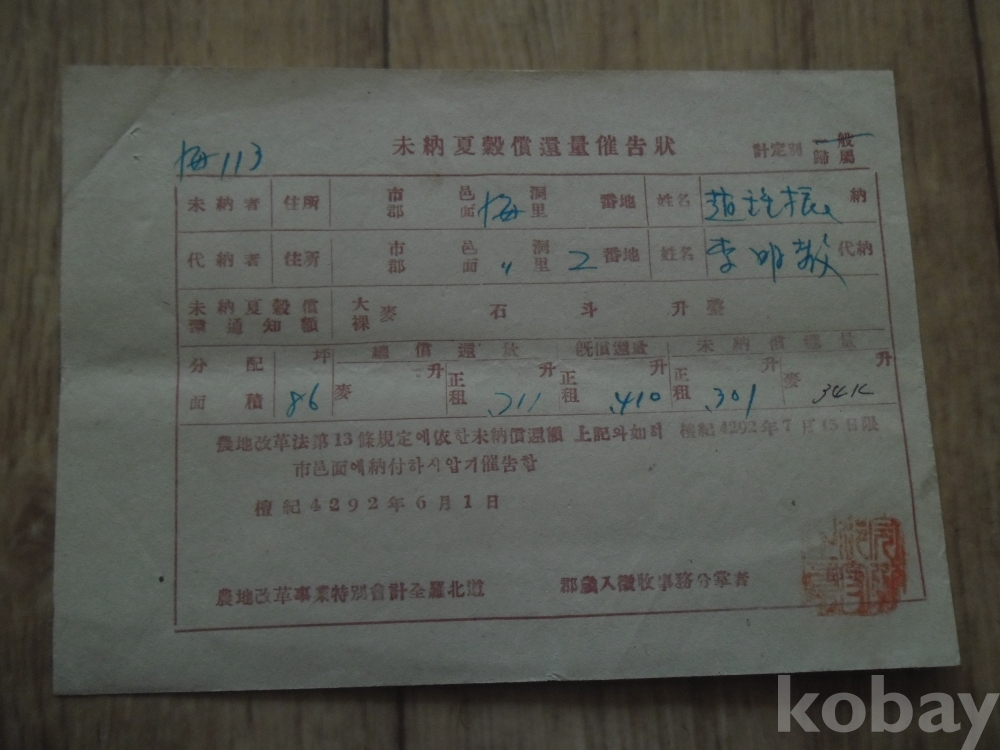 113
未納夏穀償還量催告狀
計定別 一般 歸屬
未納者 住所 市郡 邑面 洞里 番地 姓名 納
代納者 住所 市郡 邑面 〃 洞里 2 番地 姓名 李明教 代納
未納夏穀償還通知額 大裸麥 石 斗 升
分配面積 坪 總償還量 旣償還量 未納償還量
86 麥 升 正租 升 .711 正租 升 .410 正租 升 .301 麥 升
農地改革法第13條規定에依한未納償還額 上記와如히 檀紀4292年7月15日限
市邑面에納付하시압기催告함
檀紀4292年6月1日
農地改革事業特別會計全羅北道 郡歲入徵收事務分掌者
kobay